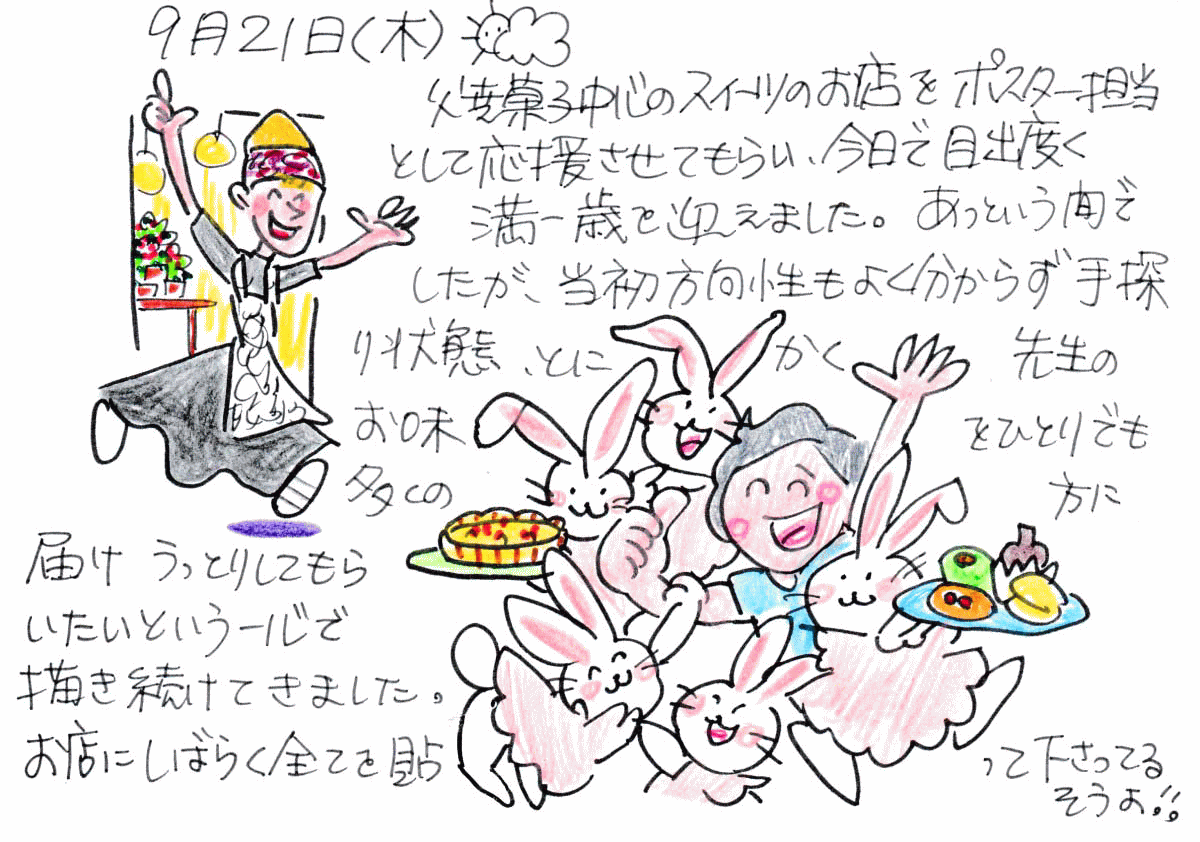 9月21日(木)
焼菓子中心のスイーツのお店をポスター担当
として応援させてもらい、今日で目出度く
満一歳を迎えました。あっという間で
したが、当初方向性もよく分からず手探
り状態、とにかく先生の
お味をひとりでも
多くの方に
届けうっとりしてもら
いたいという一心で
描き続けてきました。
お店にしばらく全てを貼って下さってる
そうよ!!